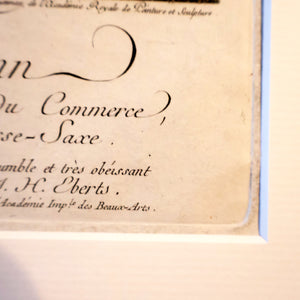 de l'Académie Royale de Peinture et Sculpture
Du Commerce,
sse-Saxe.
umble et très obéissant
J. H. Eberts.
Académie Imp.le des Beaux-Arts.